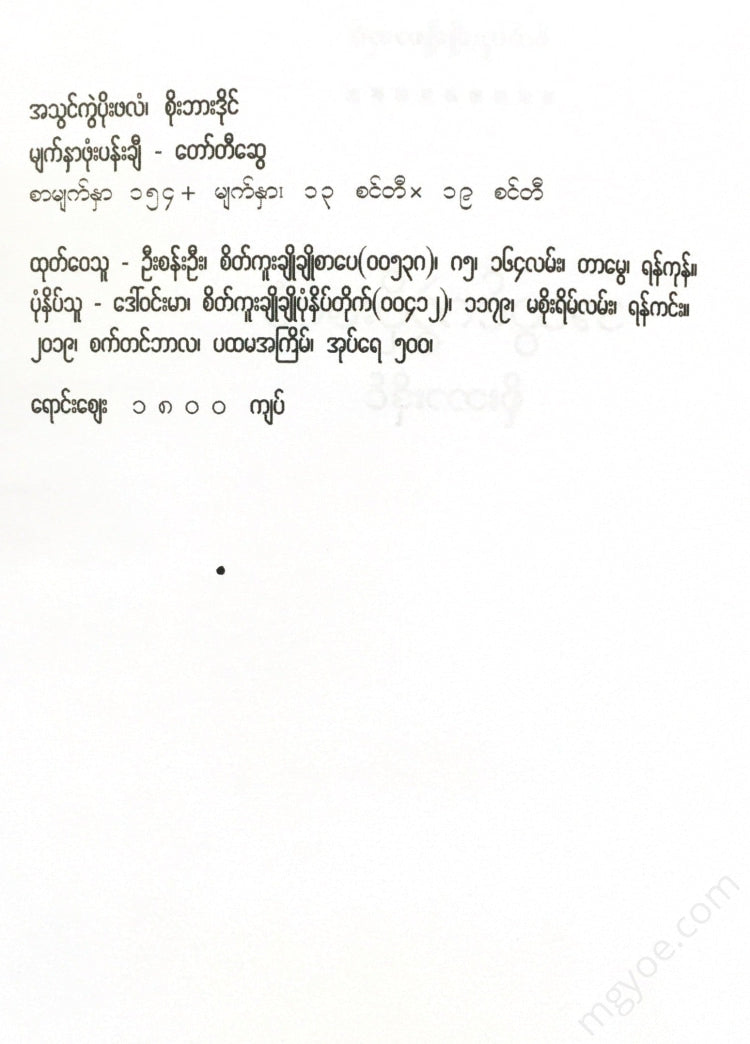 အသွင်ကွဲပိုးဖလံ၊ စိုးဘားဒိုင်
မျက်နှာဖုံးပန်းချီ - တော်တီဆွေ
စာမျက်နှာ ၁၅၄ + မျက်နှာ၊ ၁၃ စင်တီ × ၁၉ စင်တီ
ထုတ်ဝေသူ - ဦးစန်းဦး၊ စိတ်ကူးချိုချိုစာပေ(၀၀၅၃၈)၊ ၈၅၊ ၁၆၄လမ်း၊ တာမွေ၊ ရန်ကုန်။
ပုံနှိပ်သူ - ဒေါ်ဝင်းမာ၊ စိတ်ကူးချိုချိုပုံနှိပ်တိုက်(၀၀၄၁၂)၊ ၁၁၇၉၊ မစိုးရိမ်လမ်း၊ ရန်ကင်း။
၂၀၁၉၊ စက်တင်ဘာလ၊ ပထမအကြိမ်၊ အုပ်ရေ ၅၀၀၊
ရောင်းဈေး ၁ ၈ ၀ ၀ ကျပ်
mgyoe.com